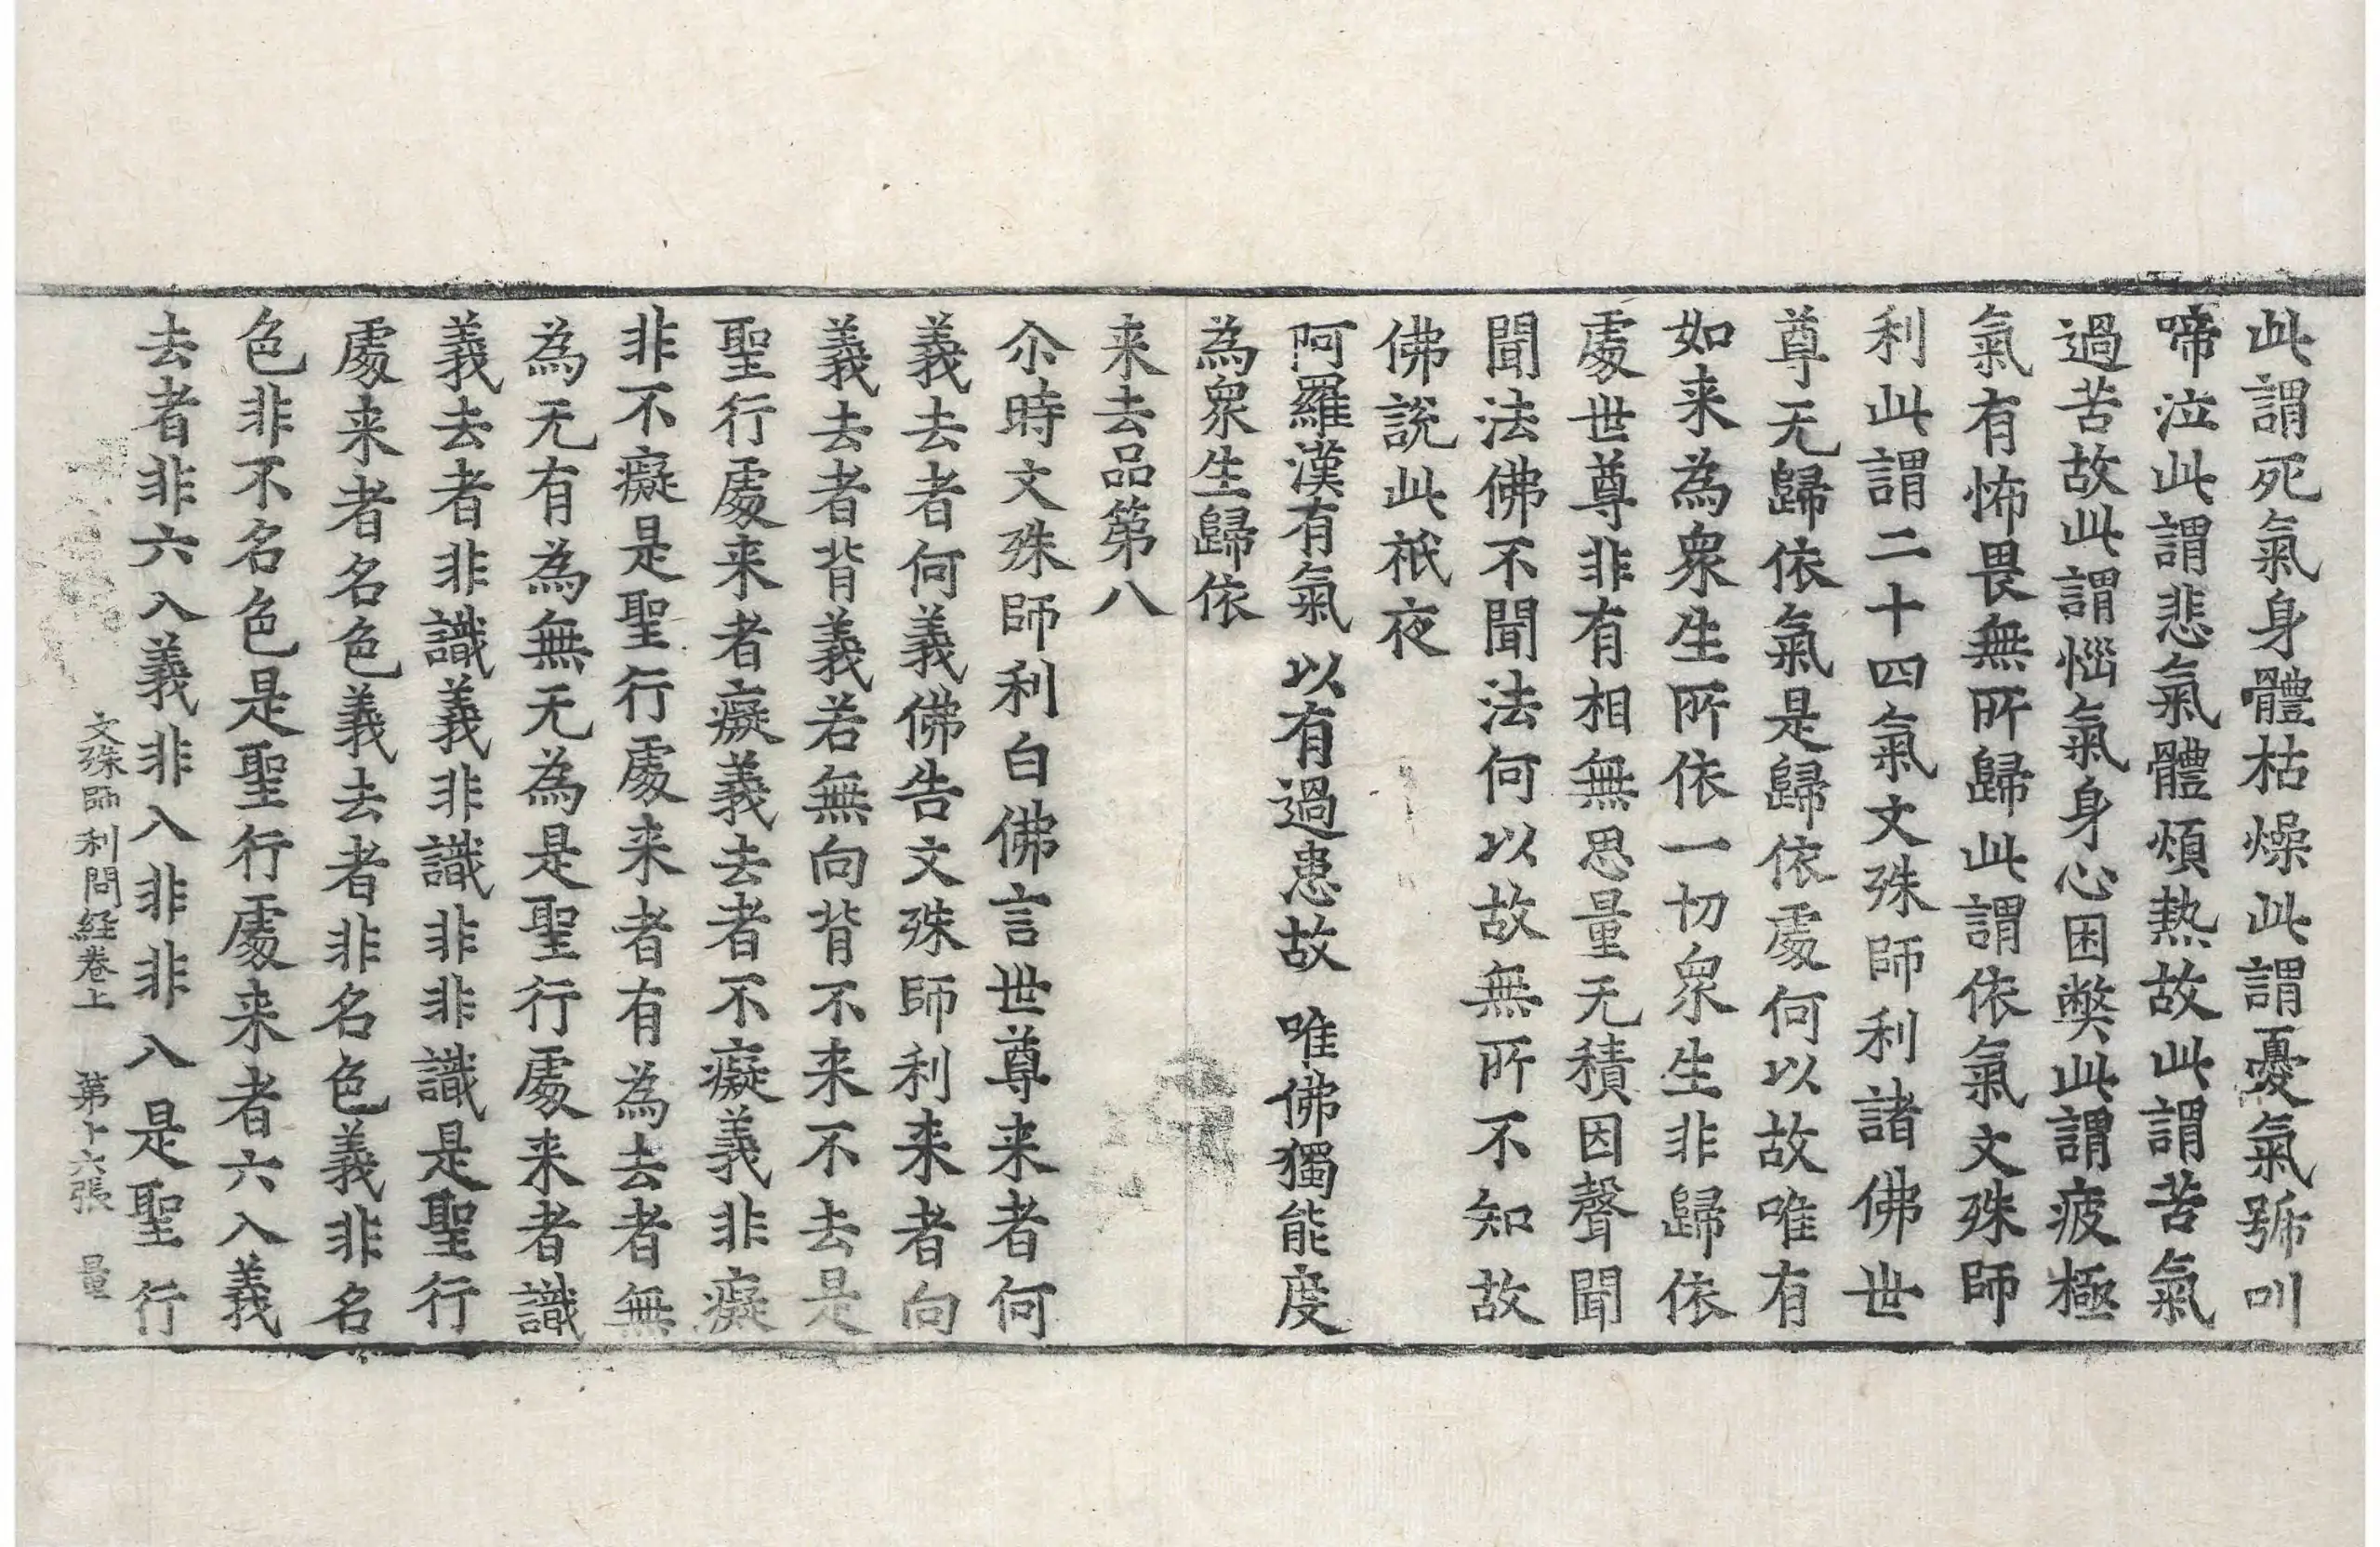 此謂死氣身體枯燥此謂憂氣號叫
啼泣此謂悲氣體煩熱故此謂苦氣
過苦故此謂惱氣身心困弊此謂疲極
氣有怖畏無所歸此謂依氣文殊師
利此謂二十四氣文殊師利諸佛世
尊无歸依氣是歸依處何以故唯有
如来為衆生所依一切衆生非歸依
處世尊非有相無思量无積因聲聞
聞法佛不聞法何以故無所不知故
佛說此祇夜
阿羅漢有氣 以有過患故 唯佛獨能度
為衆生歸依
来去品第八
尒時文殊師利白佛言世尊来者何
義去者何義佛告文殊師利来者向
義去者背義若無向背不来不去是
聖行處来者癡義去者不癡義非癡
非不癡是聖行處来者有為去者無
為无有為無无為是聖行處来者識
義去者非識義非識非非識是聖行
處来者名色義去者非名色義非名
色非不名色是聖行處来者六入義
去者非六入義非入非非入是聖行
文殊師利問経卷上 第十六張 量